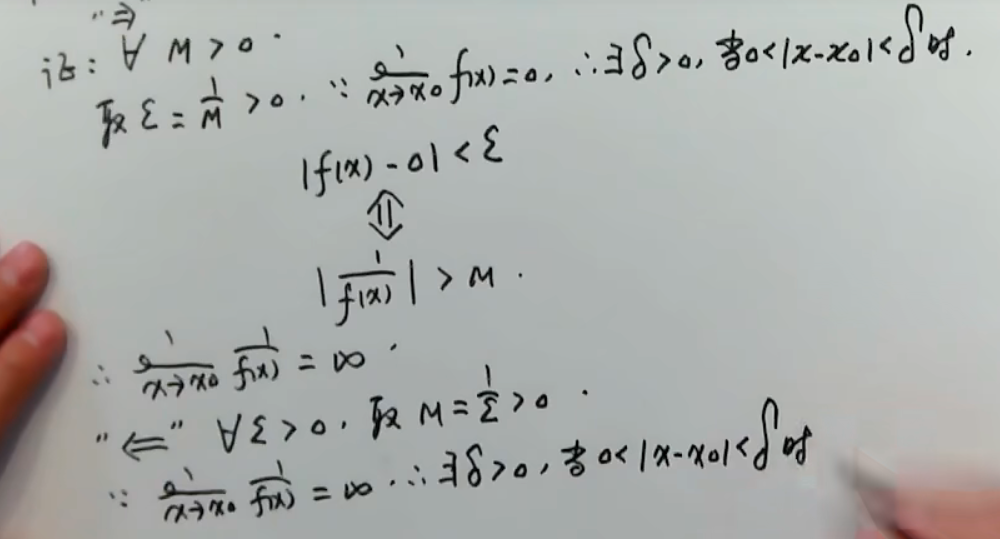 "⇒"
证: ∀ M > 0 .
取 ε = 1/M > 0 . ∵ lim_{x→x0} f(x) = 0, ∴ ∃ δ > 0, 当 0 < |x - x0| < δ 时.
|f(x) - 0| < ε
⇕
|1/f(x)| > M .
∴ lim_{x→x0} 1/f(x) = ∞ .
"⇐" ∀ ε > 0 . 取 M = 1/ε > 0 .
∵ lim_{x→x0} 1/f(x) = ∞ . ∴ ∃ δ > 0, 当 0 < |x - x0| < δ 时